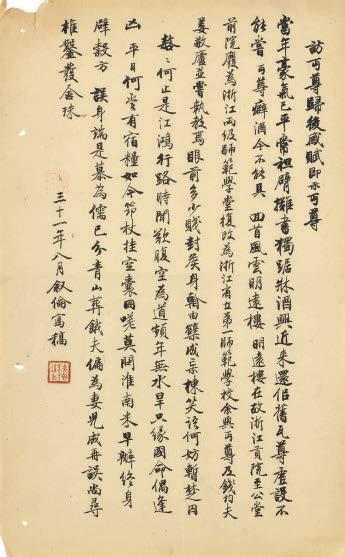 訪丏尊歸後感賦即示丏尊
當年豪氣已平常袒臂攤書獨踞牀酒興近來還侶舊瓦尊虛設不
能嘗 丏尊癖酒今不能具 回首風雲明遠樓 明遠樓在故浙江貢院至公堂
前院廢為浙江兩級師範學堂復改為浙江省立第一師範學校余與丏尊及錢均夫
姜敬廬並嘗執教焉 眼前多少賤封矦身輸由成棟笑語何妨暫楚囚
嗸〻何止是江鴻行路時聞歎腹空為道頻年無水旱只緣國命偶逢
凶 平日何嘗有宿糧如今節杖挂空囊因嗟莫問淮南米早辦終身
辟穀方 誤身端是慕為儒已分青山葬餓夫偏為妻兒成再誤尚尋
椎鑿發含珠
三十一年八月叙倫寫稿